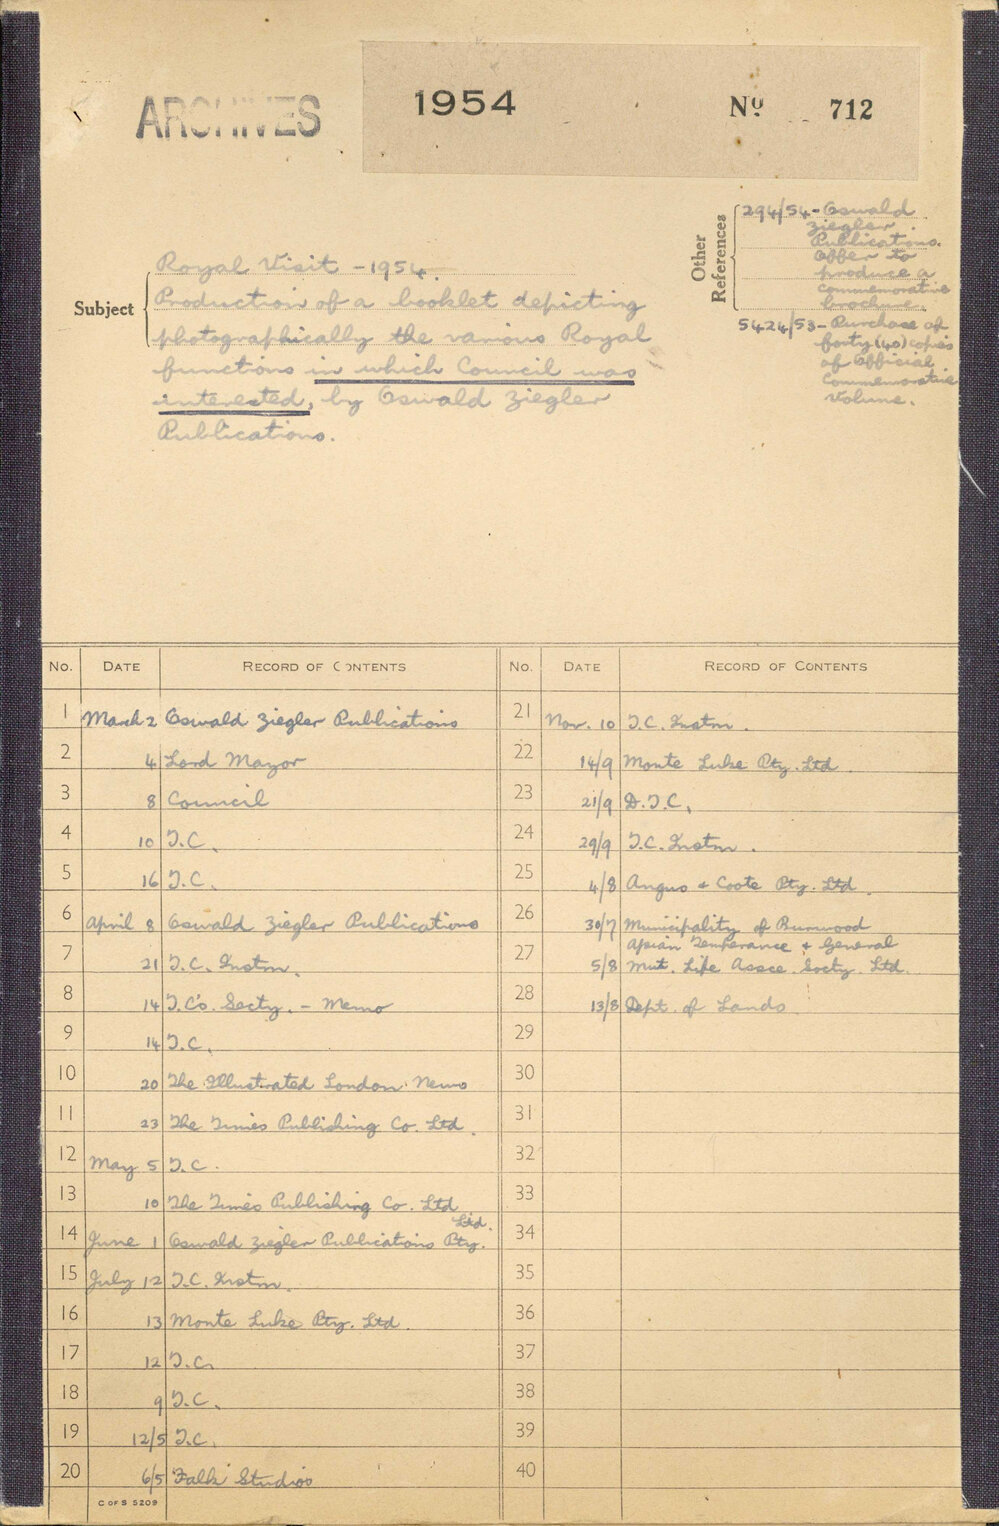 ARCHIVES
1954 Nº 712
Other References
294/54 - Oswald
Ziegler
Publications.
Offer to
produce a
commemorative
brochure.
5424/53 - Purchase of
forty (40) copies
of Official
Commemorative
Volume.
Subject
Royal Visit - 1954.
Production of a booklet depicting
photographically the various Royal
functions in which Council was
interested, by Oswald Ziegler
Publications.
No. DATE RECORD OF CONTENTS
1 March 2 Oswald Ziegler Publications
2 4 Lord Mayor
3 8 Council
4 10 T.C.
5 16 T.C.
6 April 8 Oswald Ziegler Publications
7 21 T.C. Instn.
8 14 T.C's. Secty. - Memo
9 14 T.C.
10 20 The Illustrated London News
11 23 The Times Publishing Co. Ltd.
12 May 5 T.C.
13 10 The Times Publishing Co. Ltd
14 June 1 Oswald Ziegler Publications Pty. Ltd.
15 July 12 T.C. Instn.
16 13 Monte Luke Pty. Ltd.
17 12 T.C.
18 9 T.C.
19 12/5 T.C.
20 6/5 'Falk' Studios
C OF S 5209
No. DATE RECORD OF CONTENTS
21 Nov. 10 T.C. Instn.
22 14/9 Monte Luke Pty. Ltd.
23 21/9 D.T.C.
24 29/9 T.C. Instn.
25 4/8 Angus & Coote Pty. Ltd.
26 30/7 Municipality of Burwood
27 5/8 Temperance & General
Mut. Life Assce. Socty. Ltd.
28 13/8 Dept. of Lands
29
30
31
32
33
34
35
36
37
38
39
40